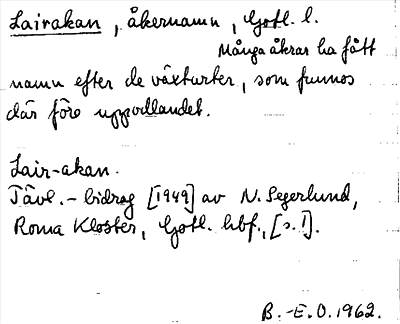 Lairakan, åkernamn, Gotl. l.
Många åkrar ha fått
namn efter de växturter, som funnos
där före uppodlandet.
Lair-akan.
Tävl.-bidrag [1949] av N. Segerlund,
Roma Kloster, Gotl. hbf., [s. 1].
B.-E.O. 1962.